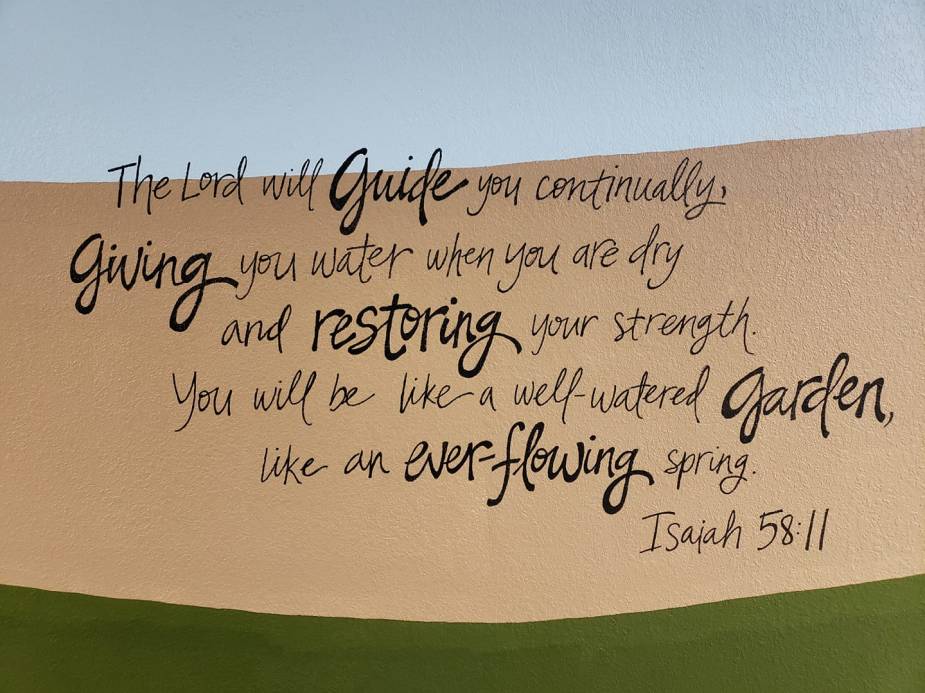 The Lord will Guide you continually,
Giving you water when you are dry
and restoring your strength.
You will be like a well-watered Garden,
like an ever-flowing spring.
Isaiah 58:11